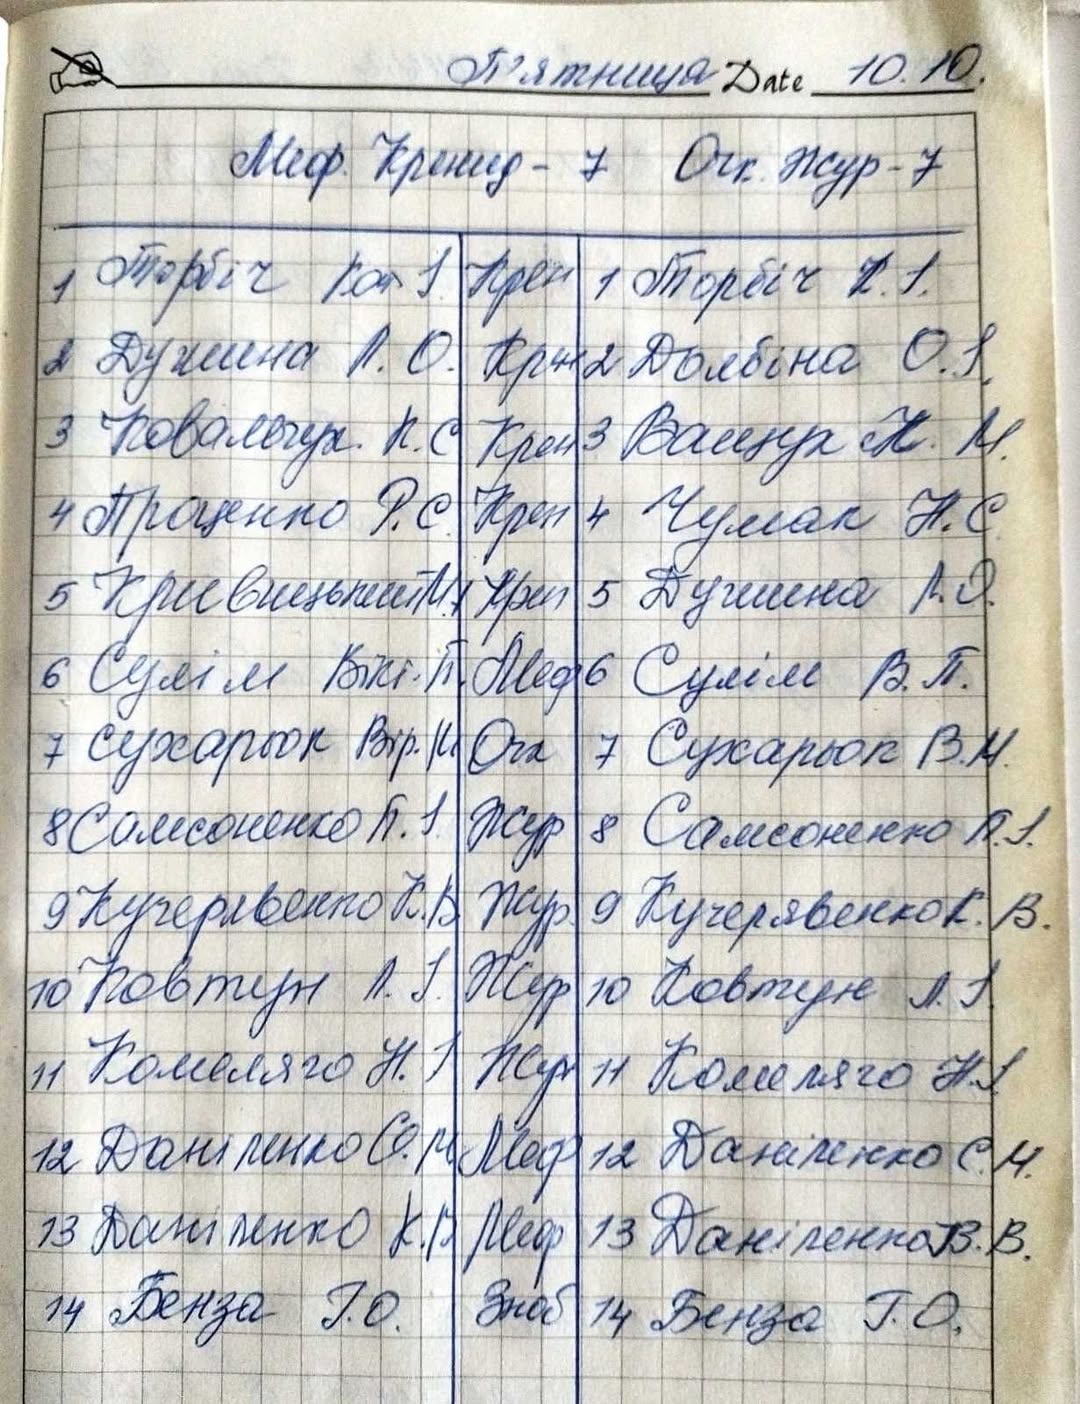 П'ятниця Date 10.10.
Меф. Кренид - 7 Очк. Жур - 7
1 Торбіч Кат І. Крен 1 Торбіч К. І.
2 Душина Л. О. Крен 2 Долбіна О. І.
3 Ковальчук. К. С Крен 3 Ващук Ж. М.
4 Проценко Р. С. Крен 4 Чумак Н. С
5 Кривицький М. Крен 5 Душина Л. О.
6 Сулім Вікт. П. Меф 6 Сулім В. П.
7 Сухарьок Вір. М. Очк 7 Сухарьок В. М.
8 Самсоненко П. І. Жур 8 Самсоненко П. І.
9 Кучерявенко К. В Жур. 9 Кучерявенко К. В.
10 Ковтун Л. І. Жур 10 Ковтун Л. І.
11 Комеляго Н. І Жур 11 Комеляго Н. І.
12 Даніленко С. М. Меф 12 Даніленко С. М.
13 Даніленко К. В Меф 13 Даніленко В. В.
14 Бенза Г. О. Зноб 14 Бенза Г. О.